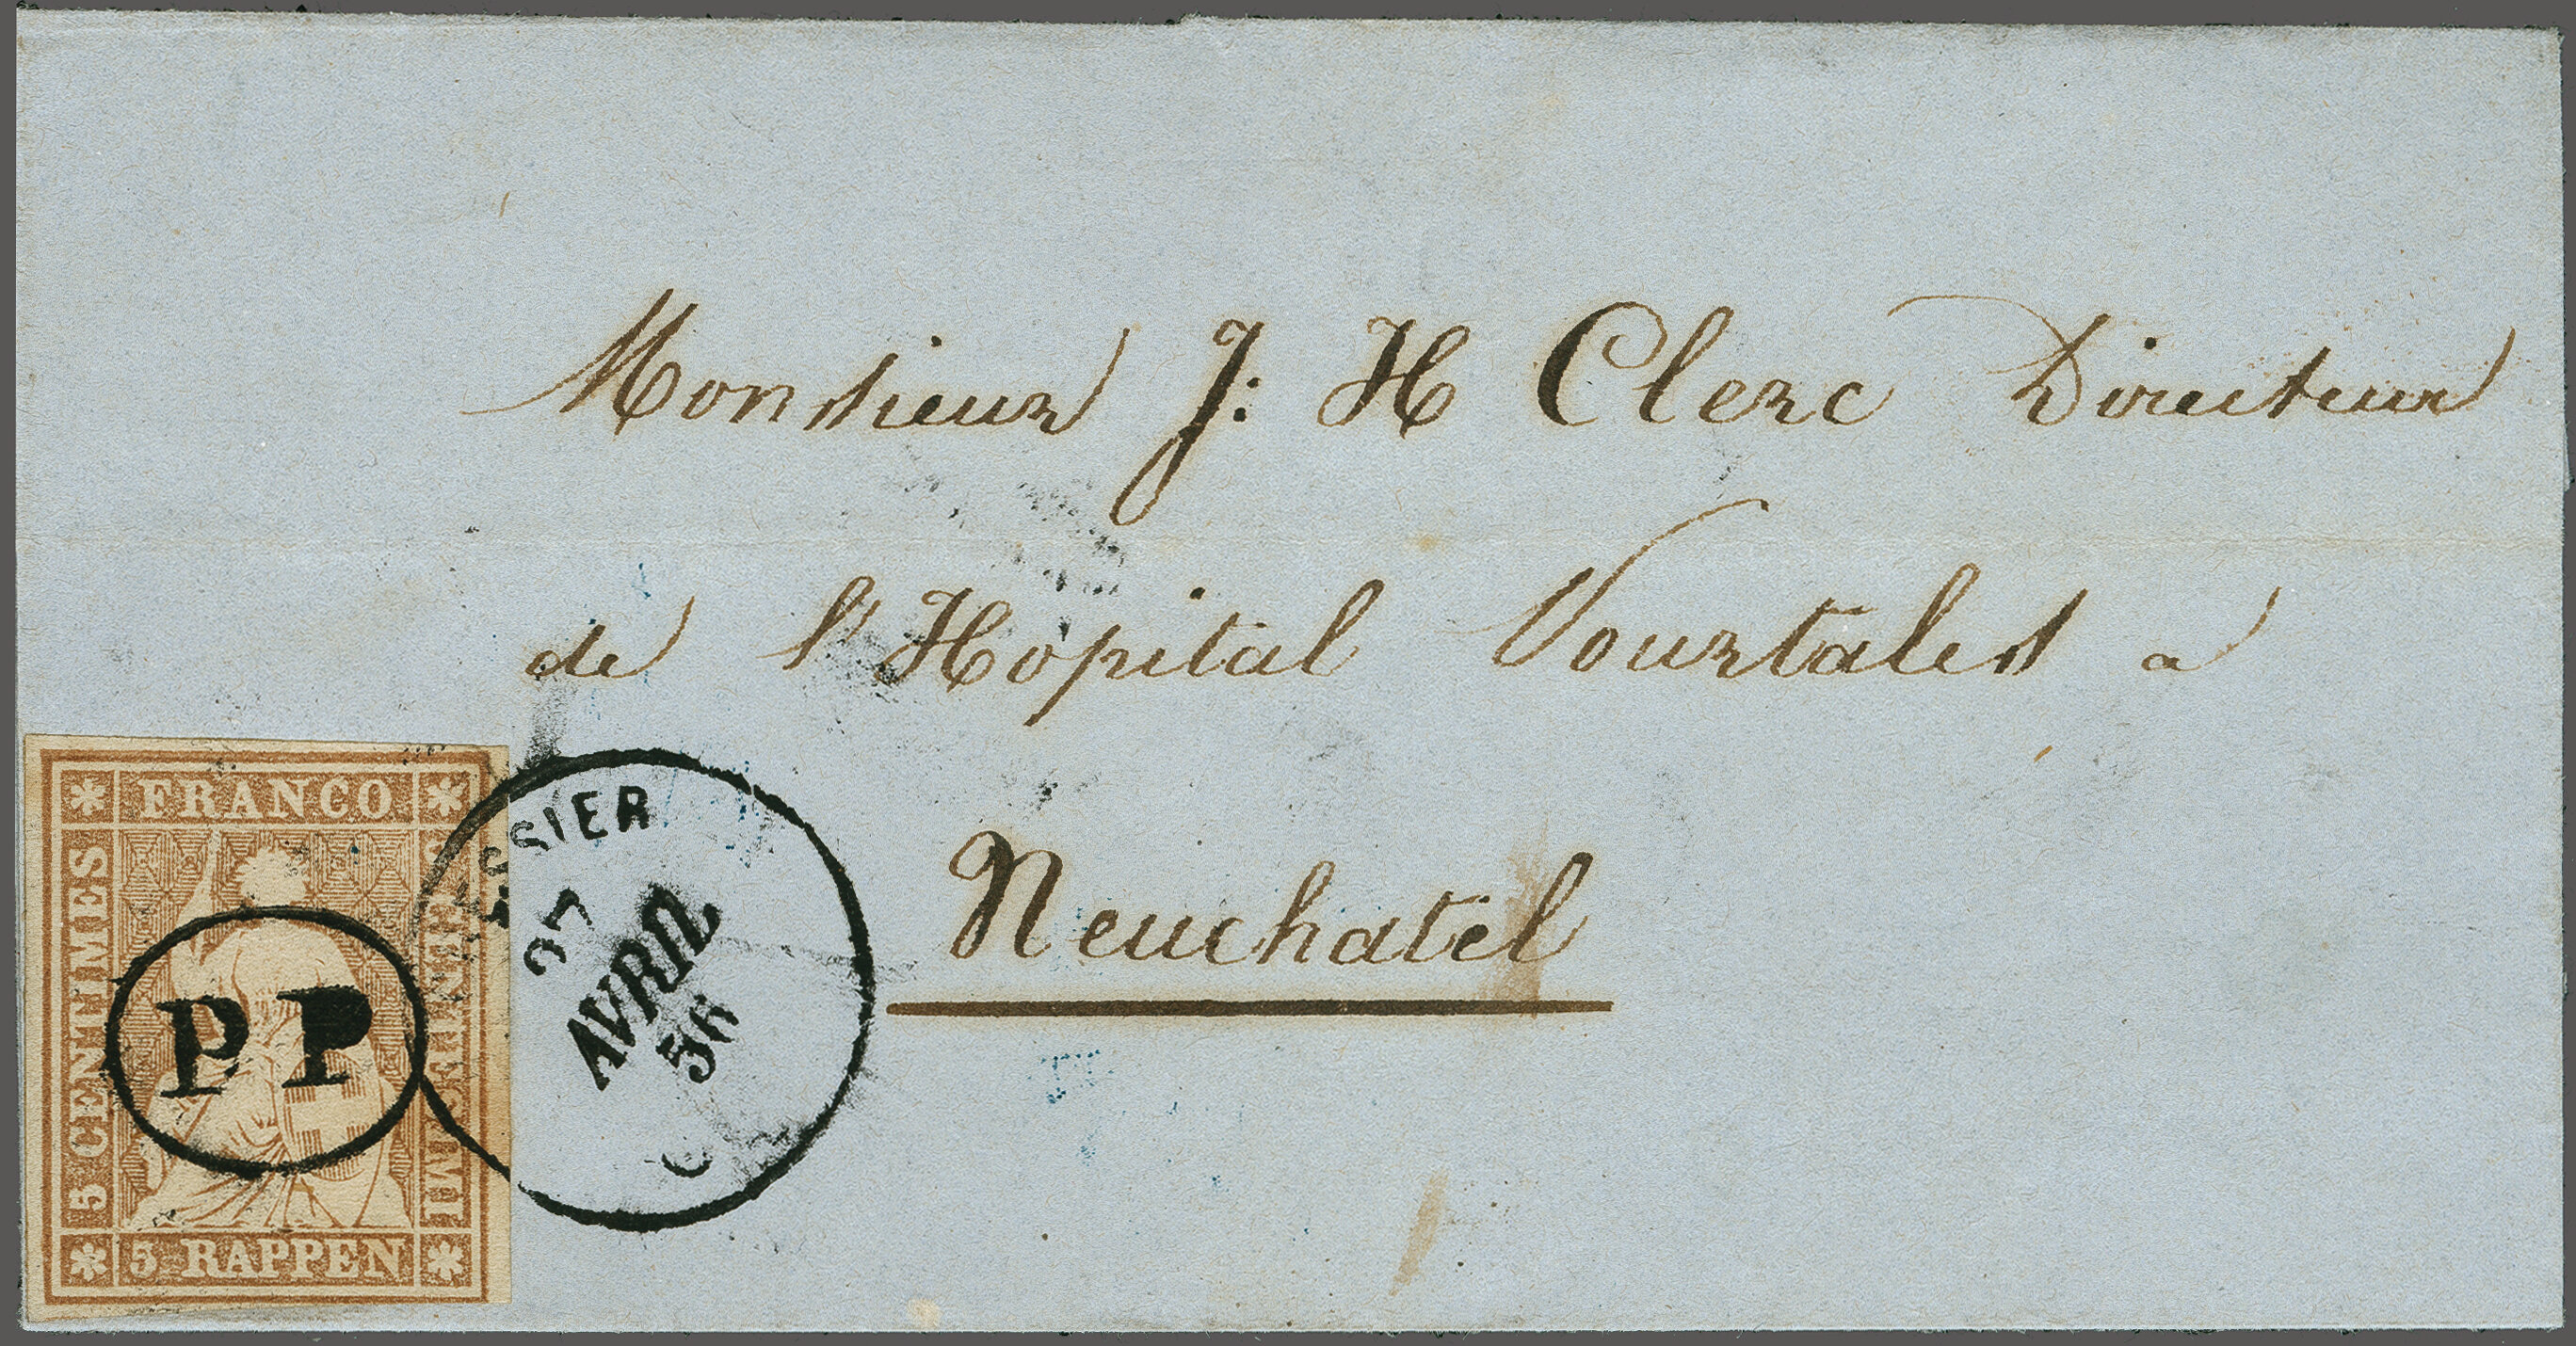 Monsieur J: H Clerc Directeur
de l'Hopital Pourtales a
Neuchatel
FRANCO
5 CENTIMES
5 RAPPEN
PP
SSIER
27
AVRIL
56